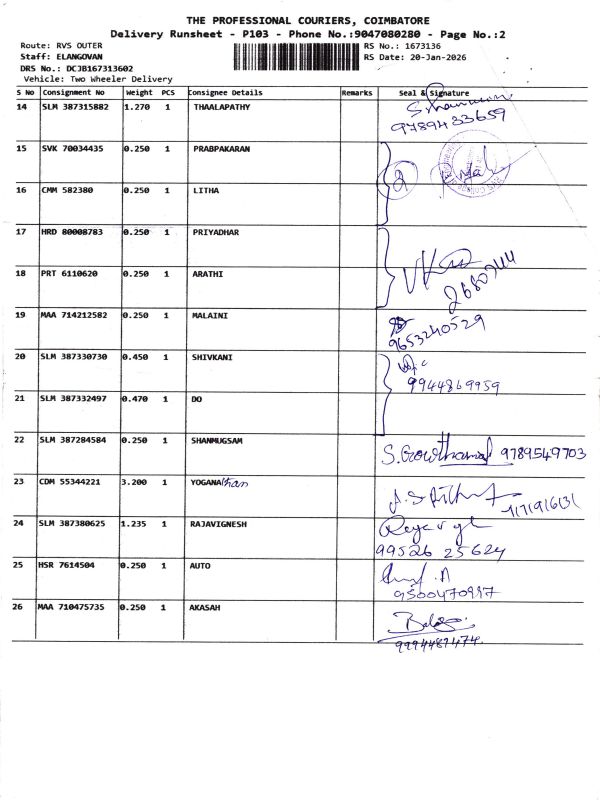 THE PROFESSIONAL COURIERS, COIMBATORE
Delivery Runsheet - P103 - Phone No.:9047080280 - Page No.:2
Route: RVS OUTER
RS No.: 1673136
Staff: ELANGOVAN
RS Date: 20-Jan-2026
DRS No.: DCJB167313602
Vehicle: Two Wheeler Delivery
S No Consignment No Weight PCS Consignee Details Remarks Seal & Signature
14 SLM 387315882 1.270 1 THAALAPATHY
9789433659
15 SVK 70034435 0.250 1 PRABPAKARAN
2
16 CMM 582380 0.250 1 LITHA
17 HRD 80008783 0.250 1 PRIYADHAR
18 PRT 6110620 0.250 1 ARATHI
19 MAA 714212582 0.250 1 MALAINI
9653240529
20 SLM 387330730 0.450 1 SHIVKANI
9944869959
21 SLM 387332497 0.470 1 DO
22 SLM 387284584 0.250 1 SHANMUGSAM S.Gowthamal 9789549703
23 CDM 55344221 3.200 1 YOGANAthan
24 SLM 387380625 1.235 1 RAJAVIGNESH
99526 25624
25 HSR 7614504 0.250 1 AUTO
26 MAA 710475735 0.250 1 AKASAH